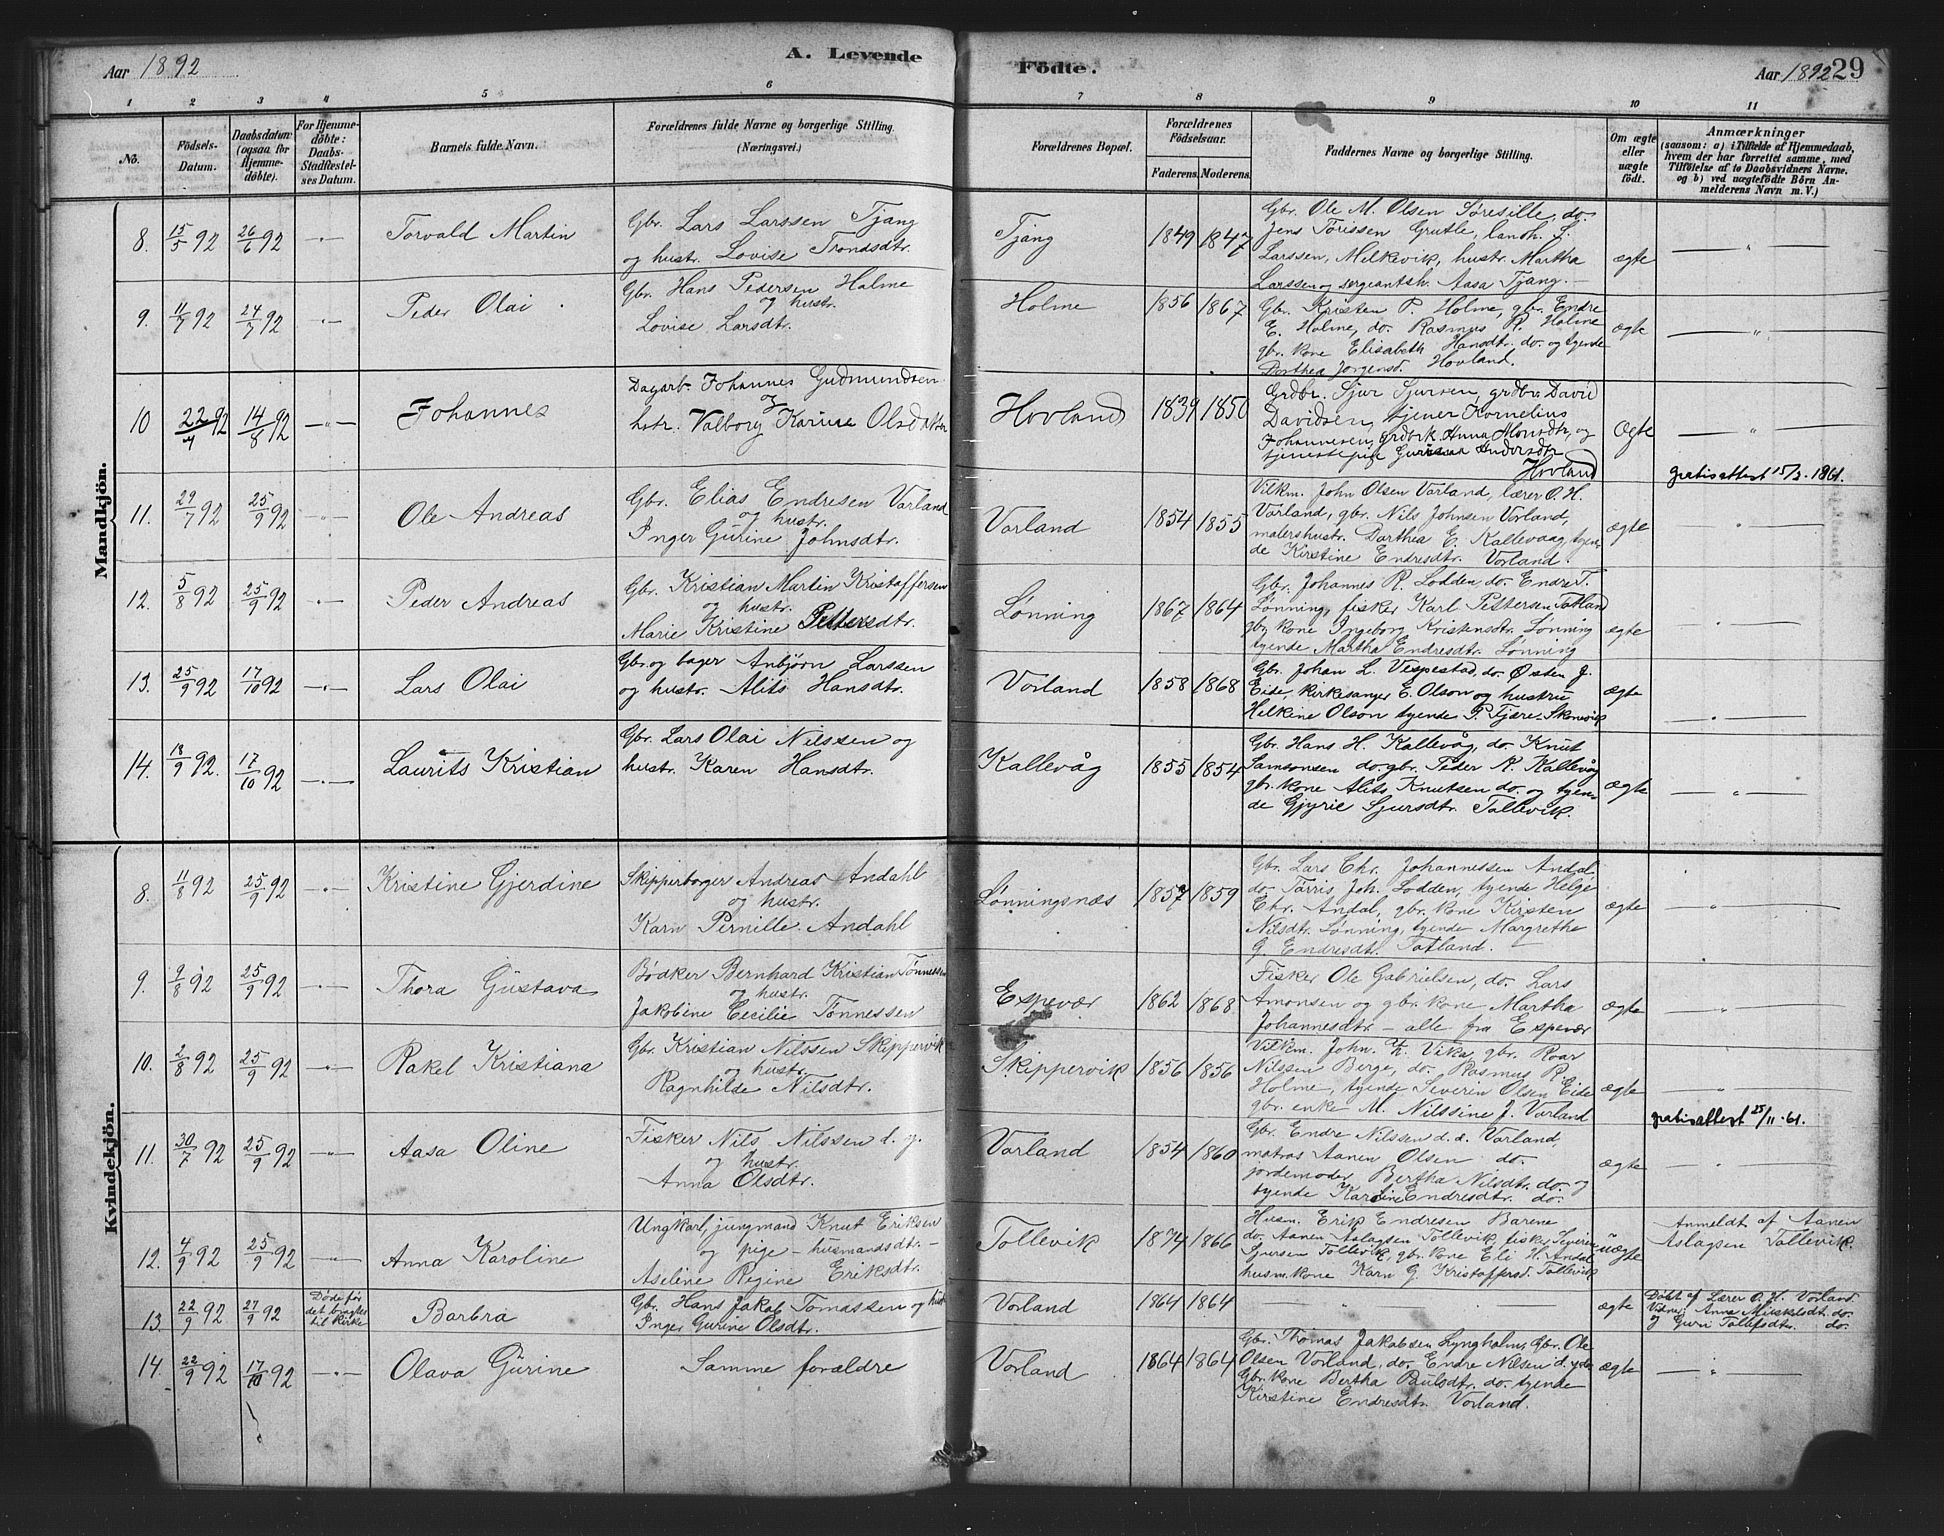 Aar 1892 A. Levende Födte. Aar 1892 29
1 2 3 4 5 6 7 8 9 10 11
No.
Födsels-Datum.
Daabsdatum (ogsaa for Hjemme-döbte).
For Hjemme-döbte: Daabs-Stadfæstel-ses Datum.
Barnets fulde Navn.
Forældrenes fulde Navne og borgerlige Stilling. (Næringsvei.)
Forældrenes Bopæl.
Forældrenes Födselsaar.
Faderens. Moderens.
Faddernes Navne og borgerlige Stilling.
Om ægte eller uægte födt.
Anmærkninger
(saasom: a) i Tilfælde af Hjemmedaab, hvem der har forrettet samme, med Tilföielse af to Daabsvidners Navne. og b) ved uægtefödte Börn An-melderens Navn m. V.)
Mandkjön.
8. 15/5 92 26/6 92 -"- Torvald Martin
Gbr. Lars Larssen Tjang
og hustr. Lovise Trondsdtr.
Tjang 1849 1847
Gbr. Ole M. Olsen Søresille, do.
Jens Torissen Grutle, landh. L.
Larssen, Milkevik, hustr. Martha
Larssen og sergeantsh. Aasa Tjang. —
ægte — " —
9. 11/7 92 24/7 92 -"- Peder Olai
Gbr. Hans Pedersen Holme
og hustr.
Lovise Larsdtr.
Holme 1856 1867
Gbr. Kristen P. Holme, gbr. Endre
E. Holme, do. Rasmus R. Holme
gbr. kone Elisabeth Hansdtr. do. og tyende
Dorthea Jørgensd. Hovland.
ægte — " —
10 22/4 92 14/8 92 -"- Johannes
Dagarb. Johannes Gudmundsen
og
hstr. Valborg Karine Olsdatter
Hovland 1839 1850
Grdbr. Sjur Sjursen, grdbr. David
Davidsen, tjener Kornelius
Johannesen, grdbrk. Anna Monsdtr, og
tjenestepige Andersdtr
Hovland
Ægte — " —
gratisattest 15/3. 1861.
11. 29/7 92 25/9 92 -"- Ole Andreas
Gbr. Elias Endresen Vorland
og hustr.
Inger Gurine Johnsdtr.
Vorland 1854 1855
Vilkm. John Olsen Vorland, lærer O. H.
Vorland, gbr. Nils Johnsen Vorland,
malershustr. Dorthea E. Kallevaag, tyen-
de Kirstine Endresdtr. Vorland.
ægte — " —
12. 5/8 92 25/9 92 -"- Peder Andreas
Gbr. Kristian Martin Kristoffersen
og hustr.
Marie Kristine Pettersdtr.
Lønning 1867 1864
Gbr. Johannes R. Lodden do. Endr. T.
Lønning, fisker Karl Pettersen Totland
gbr. kone Ingeborg Kristensdtr. Lønning
tyende Martha Endresdtr. Lønning
ægte — " —
13. 25/9 92 17/10 92 -"- Lars Olai
Gbr. og bager Anbjørn Larssen
og hustr. Alits Hansdtr.
Vorland 1858 1868
Gbr. Johan L. Vespestad, do. Østen J.
Eide, kirkesanger E. Olson og hustru
Helkine Olson tyende P. Tjære-Skonevik
ægte — " —
14. 18/9 92. 17/10 92 -"- Laurits Kristian
Gbr. Lars Olai Nilssen og
hustr. Karen Hansdtr.
Kallevåg 1855 1854
Gbr. Hans H. Kallevåg, do. Knut
Samsonsen do. gbr. Peder K. Kallevåg
gbr. kone Alits Knutsen do. og tyen-
de Gjyrie Sjursdtr. Tollevik.
ægte — " —
Kvindekjön.
8. 11/8 92 25/9 92 -"- Kristine Gjerdine
Skipperborger Andreas Andahl
og hustr.
Karn Pernille Andahl
Lønningsnæs 1857 1859
Gbr. Lars Chr. Johannessen Andal
do. Tørris Joh. Lodden, tyende Helge
Chr. Andal, gbr. kone Kirsten
Nilsdtr. Lønning, tyende Margrethe
G. Endresdtr. Totland.
ægte — " —
9. 9/8 92 25/9 92 -"- Thora Gustava
Bødker Bernhard Kristian Tønnessen
og hustr.
Jakobine Cecilie Tönnessen
Espevær 1862 1868
Fisker Ole Gabrielsen, do. Lars
Amonsen og gbr. kone Martha
Johannesdtr. — alle fra Espevær
ægte — " —
10. 2/8 92 25/9 92 -"- Rakel Kristiana
Gbr. Kristian Nilssen Skippervik
og hustr.
Ragnhilde Nilsdtr.
Skippervik 1856 1856
Vilkm. John. Vika, gbr. Roar
Nilssen Berge, do. Rasmus R.
Holme, tyende Severin Olsen Eide
gbr. enke M. Nilssine J. Vorland
ægte — " —
gratisattest 25/11-61.
11. 30/7 92 25/9 92 -"- Aasa Oline
Fisker Nils Nilssen d. y.
og hustr.
Anna Olsdtr.
Vorland 1854 1860
Gbr. Endre Nilssen d. d. Vorland,
matros Aanen Olsen do.
jordemoder Bertha Nilsdtr. do. og
tyende Karoline Endresdtr. do.
ægte — " —
12. 4/9 92 25/9 92 -"- Anna Karoline
Ungkarl, jungmand Knut Eriksen
og pige — husmandsdtr. —
Aseline Regine Eriksdtr.
Tollevik 1874 1866
Husm. Erik Endresen Barene
do. Aanen Aslagsen Tollevik, fisker Severin
Sjursen Tollevik, gbr. kone Eli H. Andal
husm. kone Karn G. Kristoffersd. Tollevik
uægte
Anmeldt af Aanen
Aslagsen Tollevik.
13. 22/9 92 27/9 92
Døde før
det bragtes
til kirke
Barbra
Gbr. Hans Jakob Tomassen og hust
Inger Gurine Olsdtr.
Vorland 1864 1864 — " — ægte
Döbt af Lærer O. H. Vorland
Vidner: Anna Mikkelsdtr. do.
og Guri Tollefsdtr. do.
14. 22/9 92 17/10 92 -"- Olava Gurine
Samme forældre
Vorland 1864 1864
Gbr. Thomas Jakobsen Lyngholm, Gbr. Ole
Olsen Vorland, do. Endre Nilsen d. y. do
Gbr. kone Bertha Paulsdtr. do. tyende
Kirstine Endresdtr. Vorland.
ægte — " —